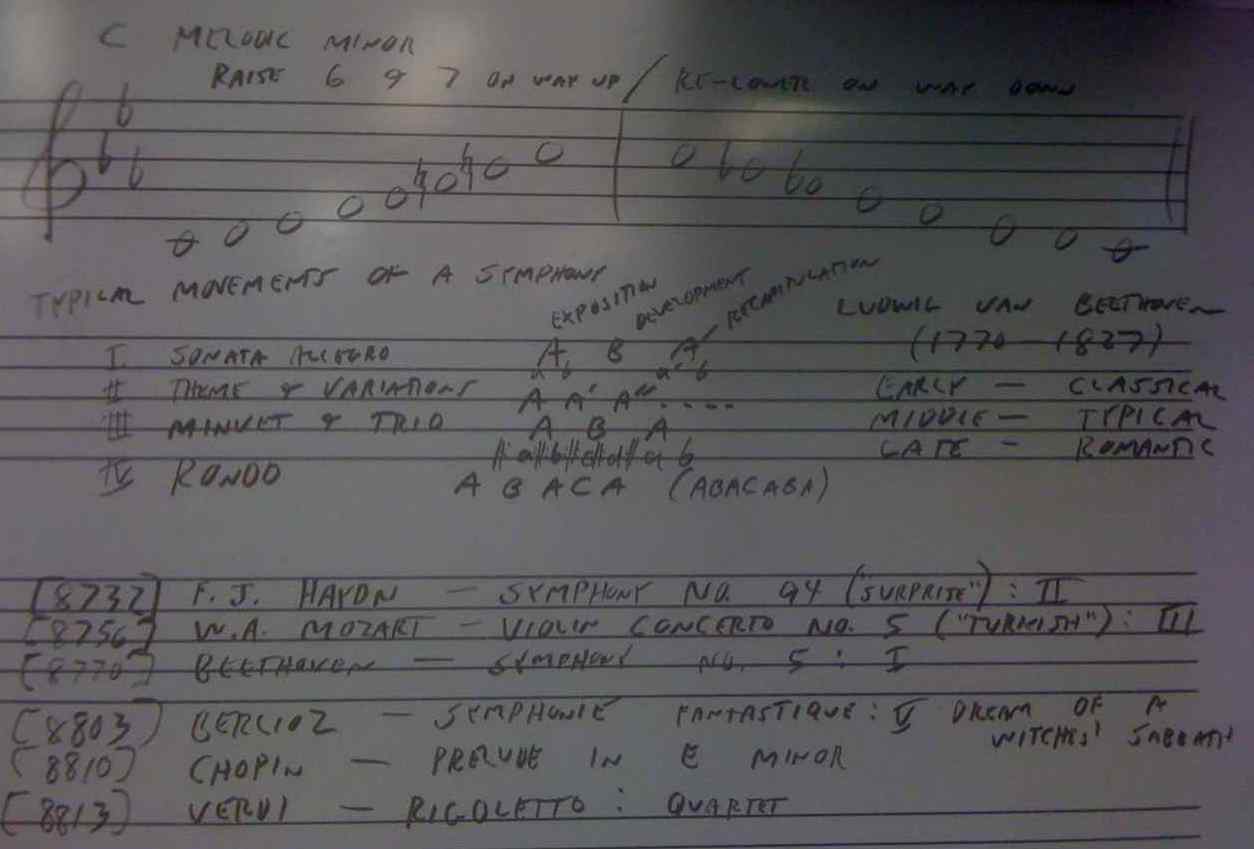 C MELODIC MINOR
RAISE 6 & 7 ON WAY UP / RE-LOWER ON WAY DOWN
TYPICAL MOVEMENTS OF A SYMPHONY
EXPOSITION DEVELOPMENT RECAPITULATION
LUDWIG VAN BEETHOVEN
(1770-1827)
I SONATA ALLEGRO A B A
a b a b
II THEME & VARIATIONS A A' A" ....
EARLY - CLASSICAL
III MINUET & TRIO A B A
MIDDLE - TYPICAL
a b c d a b
LATE - ROMANTIC
IV RONDO A B A C A (ABACABA)
[8732] F. J. HAYDN - SYMPHONY NO. 94 ("SURPRISE") : II
[8756] W.A. MOZART - VIOLIN CONCERTO NO. 5 ("TURKISH") : III
[8770] BEETHOVEN - SYMPHONY NO. 5 : I
[8803] BERLIOZ - SYMPHONIE FANTASTIQUE : V DREAM OF A
WITCHES' SABBATH
[8810] CHOPIN - PRELUDE IN E MINOR
[8813] VERDI - RIGOLETTO : QUARTET